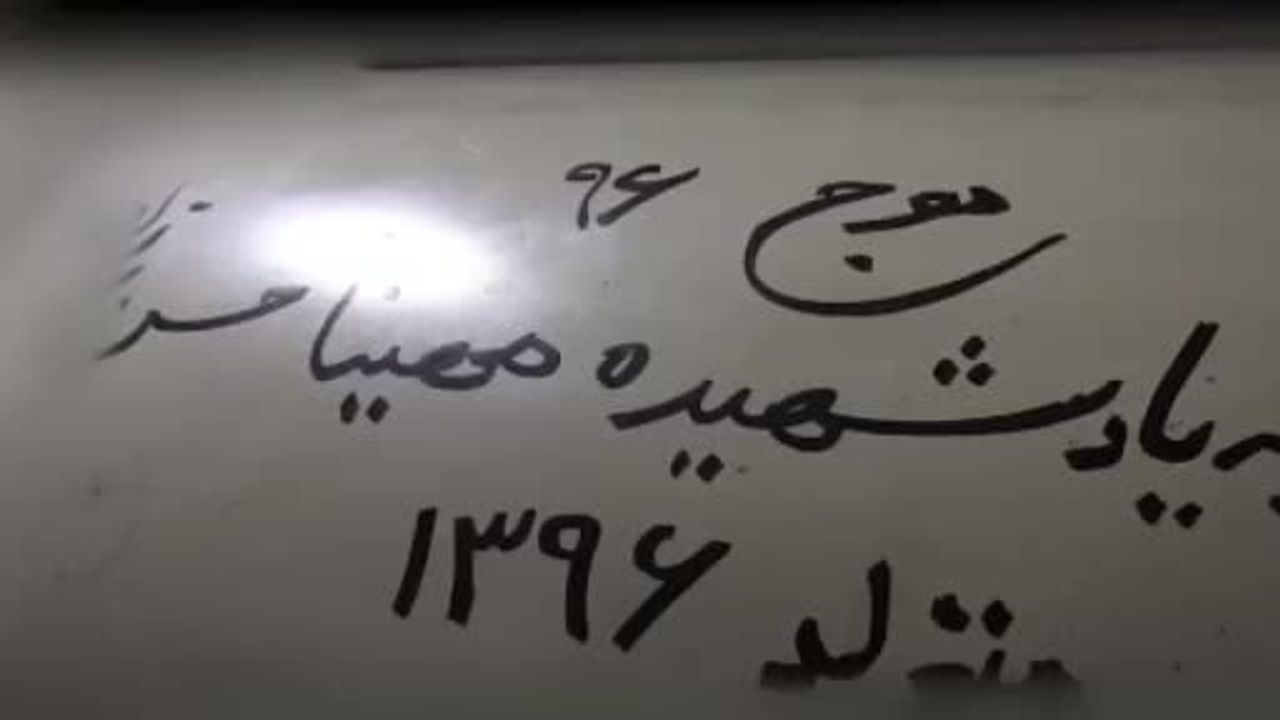 موج ۹۶
به یاد شهیده
متولد ۱۳۹۶